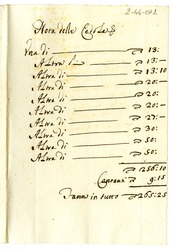 2-44-001
Nota delle
Una di 13:
Altra di 13:
Altra di 13:10
Altra di 20:
Altra di 20:
Altra di 20:
Altra di 27:
Altra di 30:
Altra di 50:
Altra di 50:
256:10
9:15
in tutto 265:25